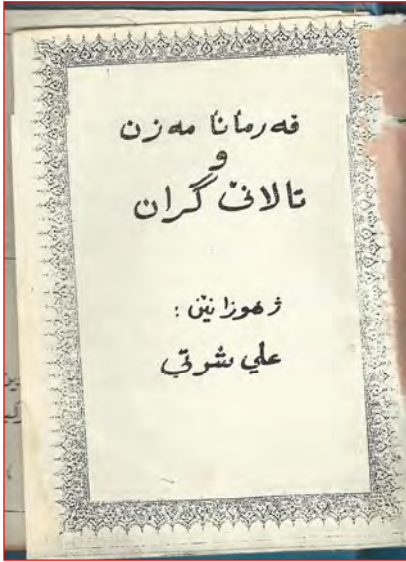 فەرمانا مەزن
و
تالانێ گران
ژ هوزانێن :
علي شرتي